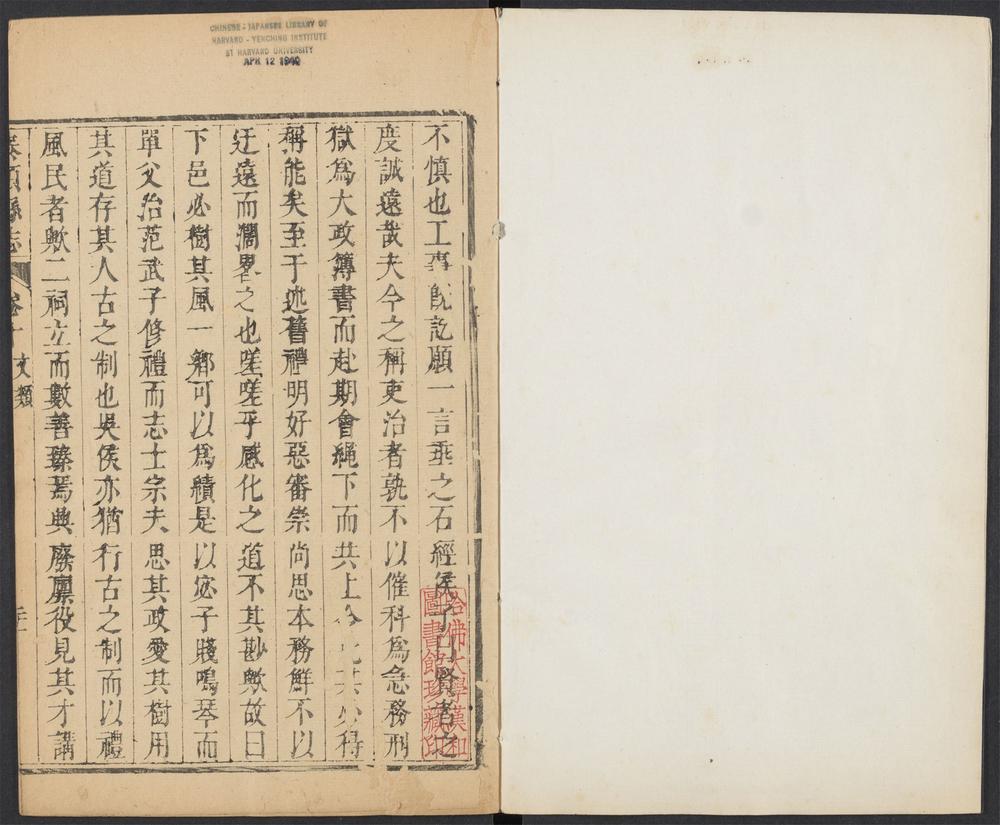 CHINESE - JAPANESE LIBRARY OF
HARVARD - YENCHING INSTITUTE
AT HARVARD UNIVERSITY
APR 12 1940
不慎也工事既訖願一言垂之石經侯子曰賢者之
度誠遠哉夫今之稱吏治者孰不以催科爲急務刑
獄爲大政簿書而赴期會繩下而共上其必得
稱能矣至于述舊禮明好惡審崇尚思本務鮮不以
迂遠而濶畧之也嗟嗟乎感化之道不其尠歟故曰
下邑必樹其風一鄉可以爲績是以宓子賤鳴琴而
單父治范武子修禮而志士宗夫思其政愛其樹用
其道存其人古之制也吳侯亦猶行古之制而以禮
風民者歟二祠立而數善臻焉典廢舉役見其才講
縣志
文類
哈佛大學漢和
圖書館珍藏印